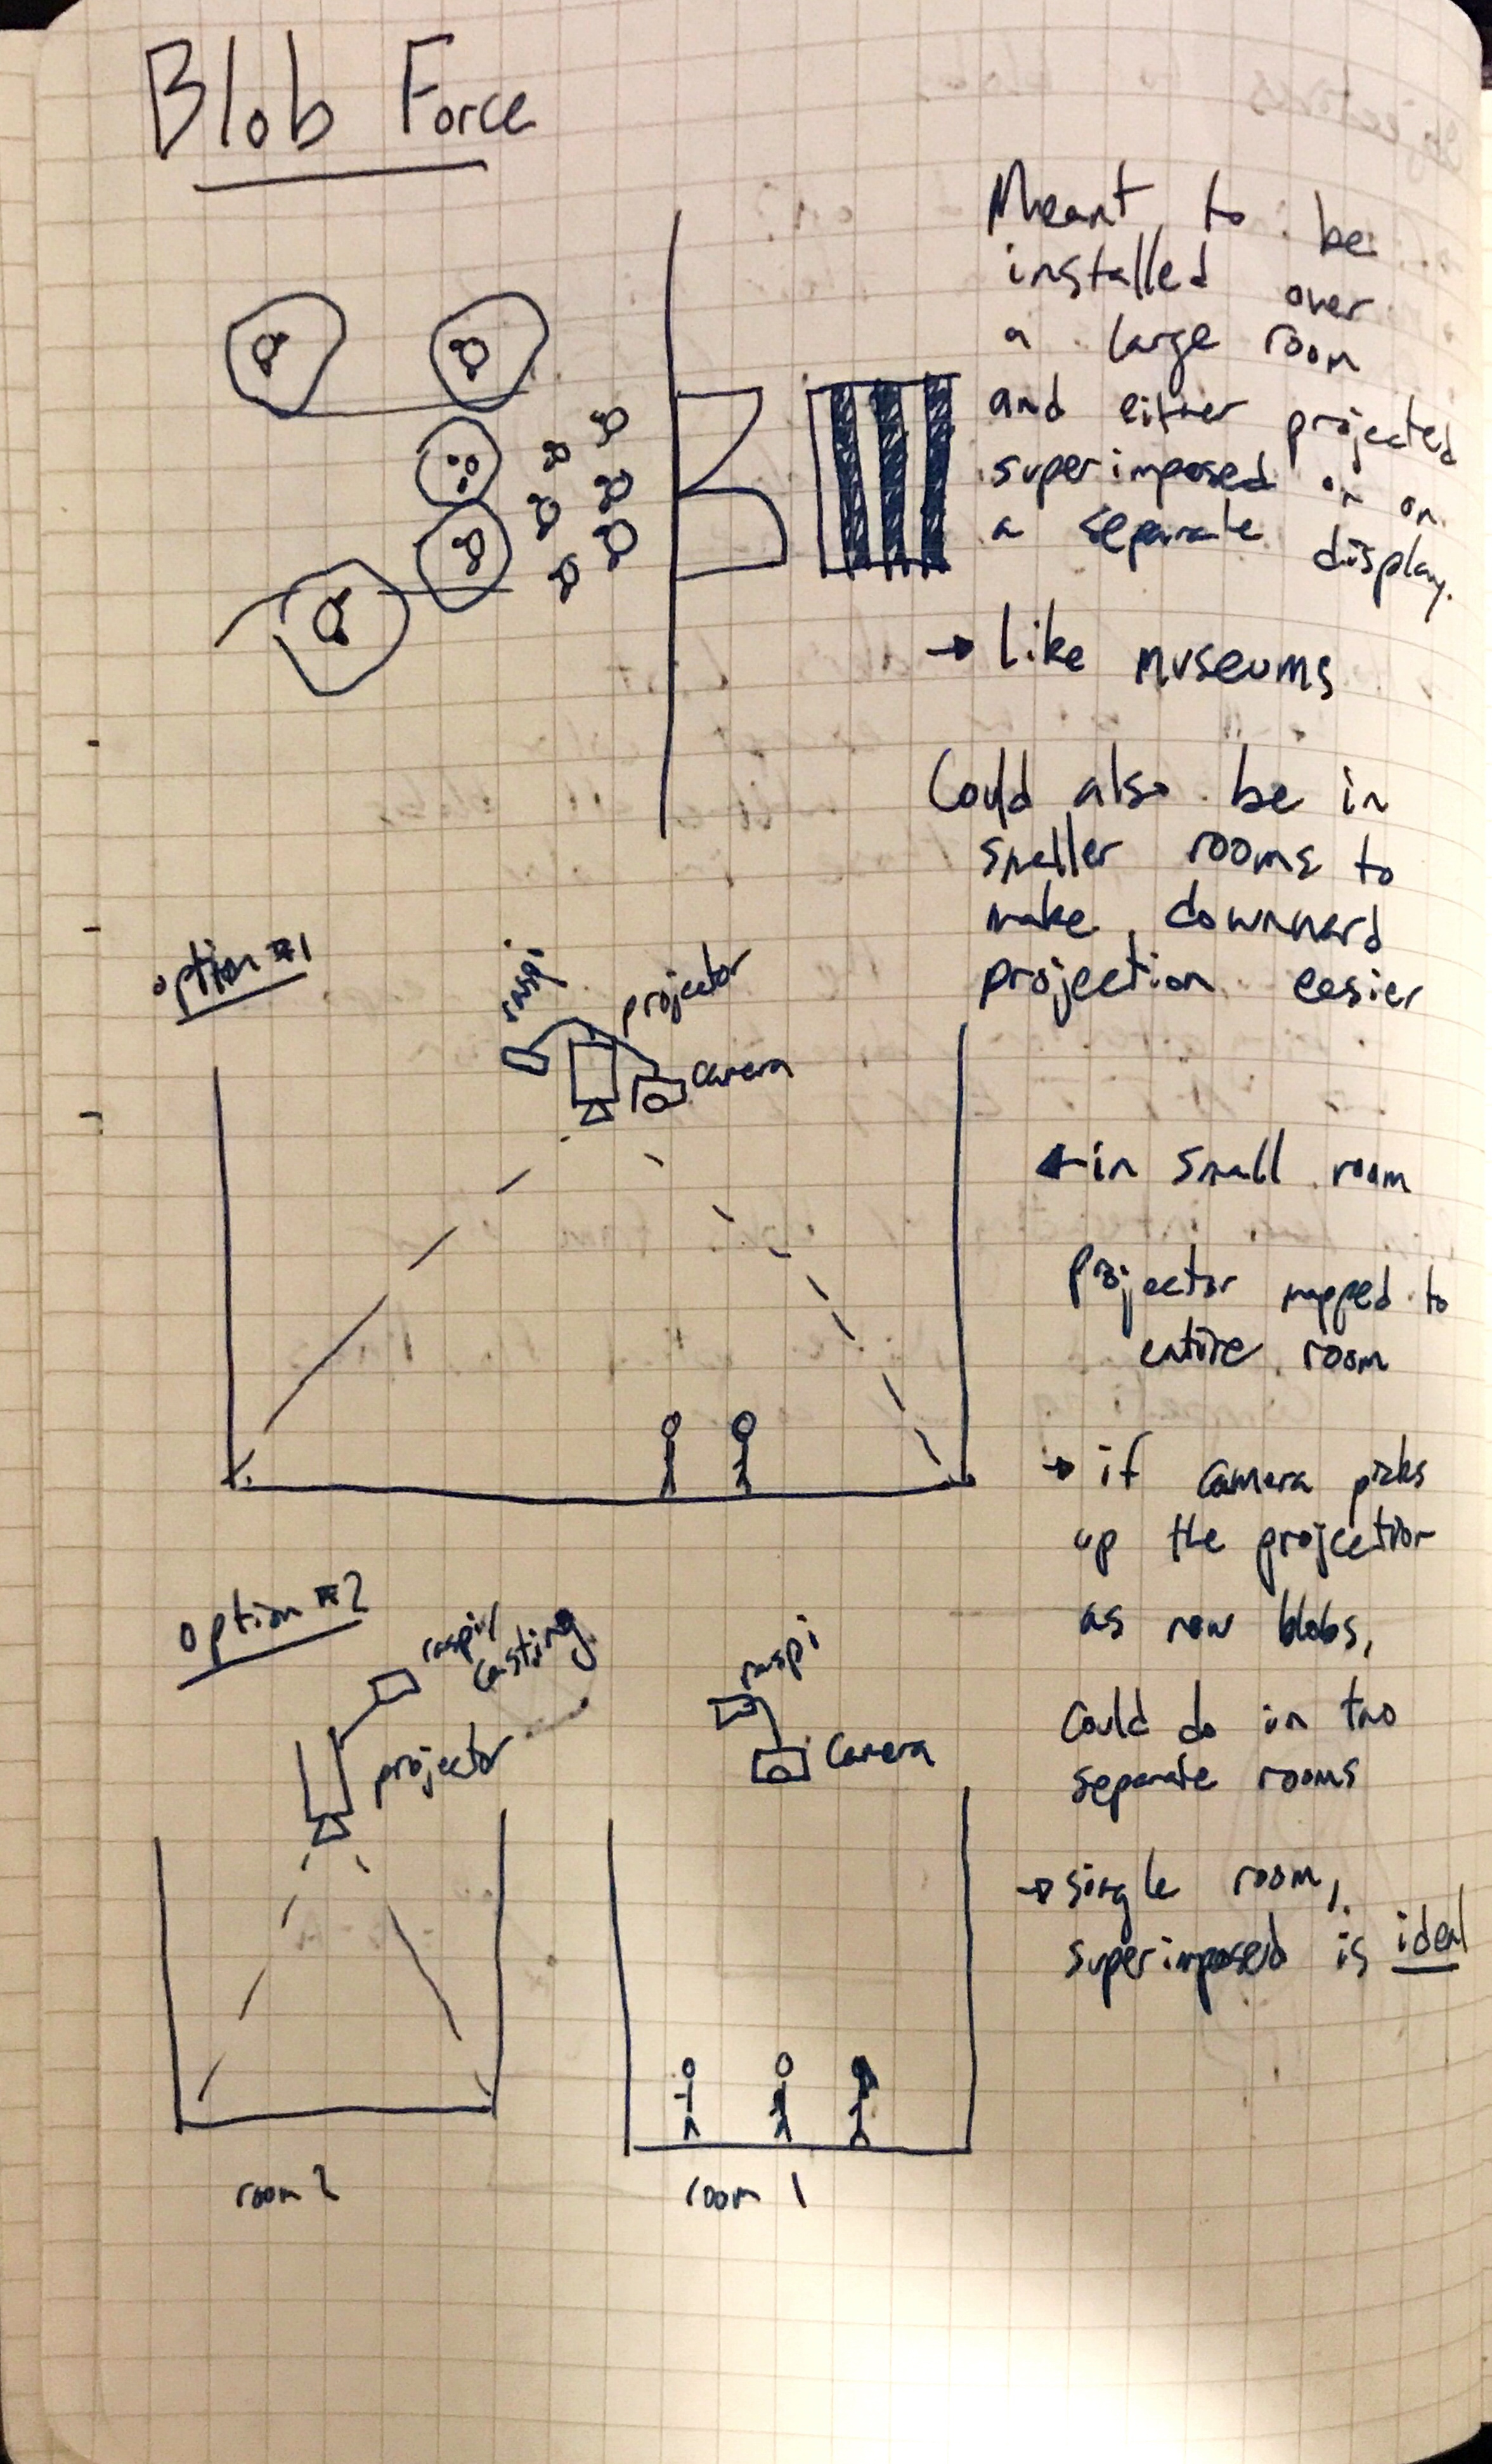 Blob Force
Meant to be
installed over
a large room
and either projected
superimposed or on
a separate display.
→ like museums
Could also be in
smaller rooms to
make downward
projection easier
option #1
raspi
projector
camera
← in small room
projector mapped to
entire room
→ if camera picks
up the projection
as new blobs,
could do in two
separate rooms
→ single room,
superimposed is ideal
option #2
raspi/
casting
projector
raspi
camera
room 2
room 1